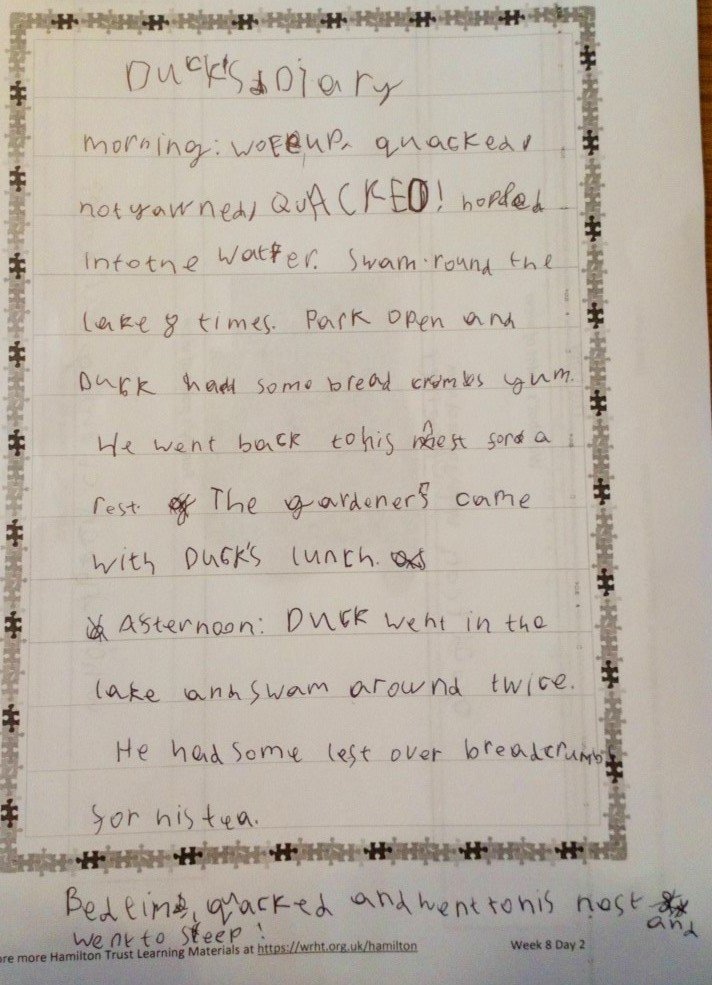 Duck's Diary
morning: woke up. quacked,
not yawned, QUACKED! hopped
into the water. Swam round the
lake 8 times. Park open and
Duck had some bread crombs yum.
He went back to his nest for a
rest. The gardener's came
with Duck's lunch.
Afternoon: Duck went in the
lake anh swam around twice.
He had some left over breadcrumbs
for his tea.
Bedtime, quacked and went to his nest and
went to sleep!
ore more Hamilton Trust Learning Materials at https://wrht.org.uk/hamilton Week 8 Day 2